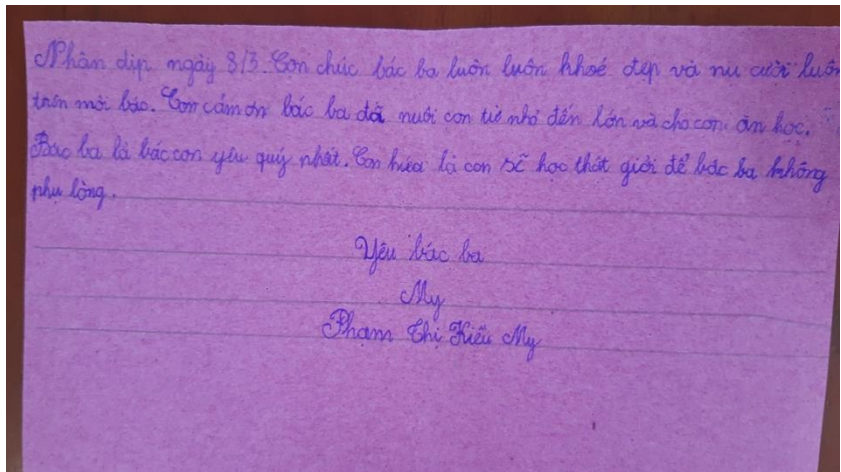 Nhân dịp ngày 8/3. Con chúc bác ba luôn luôn khoẻ đẹp và nụ cười luôn
trên môi bác. Con cảm ơn bác ba đã nuôi con từ nhỏ đến lớn và cho con ăn học.
Bác ba là bác con yêu quý nhất. Con hứa là con sẽ học thật giỏi để bác ba không
phụ lòng.
Yêu bác ba
My
Phạm Thị Kiều My